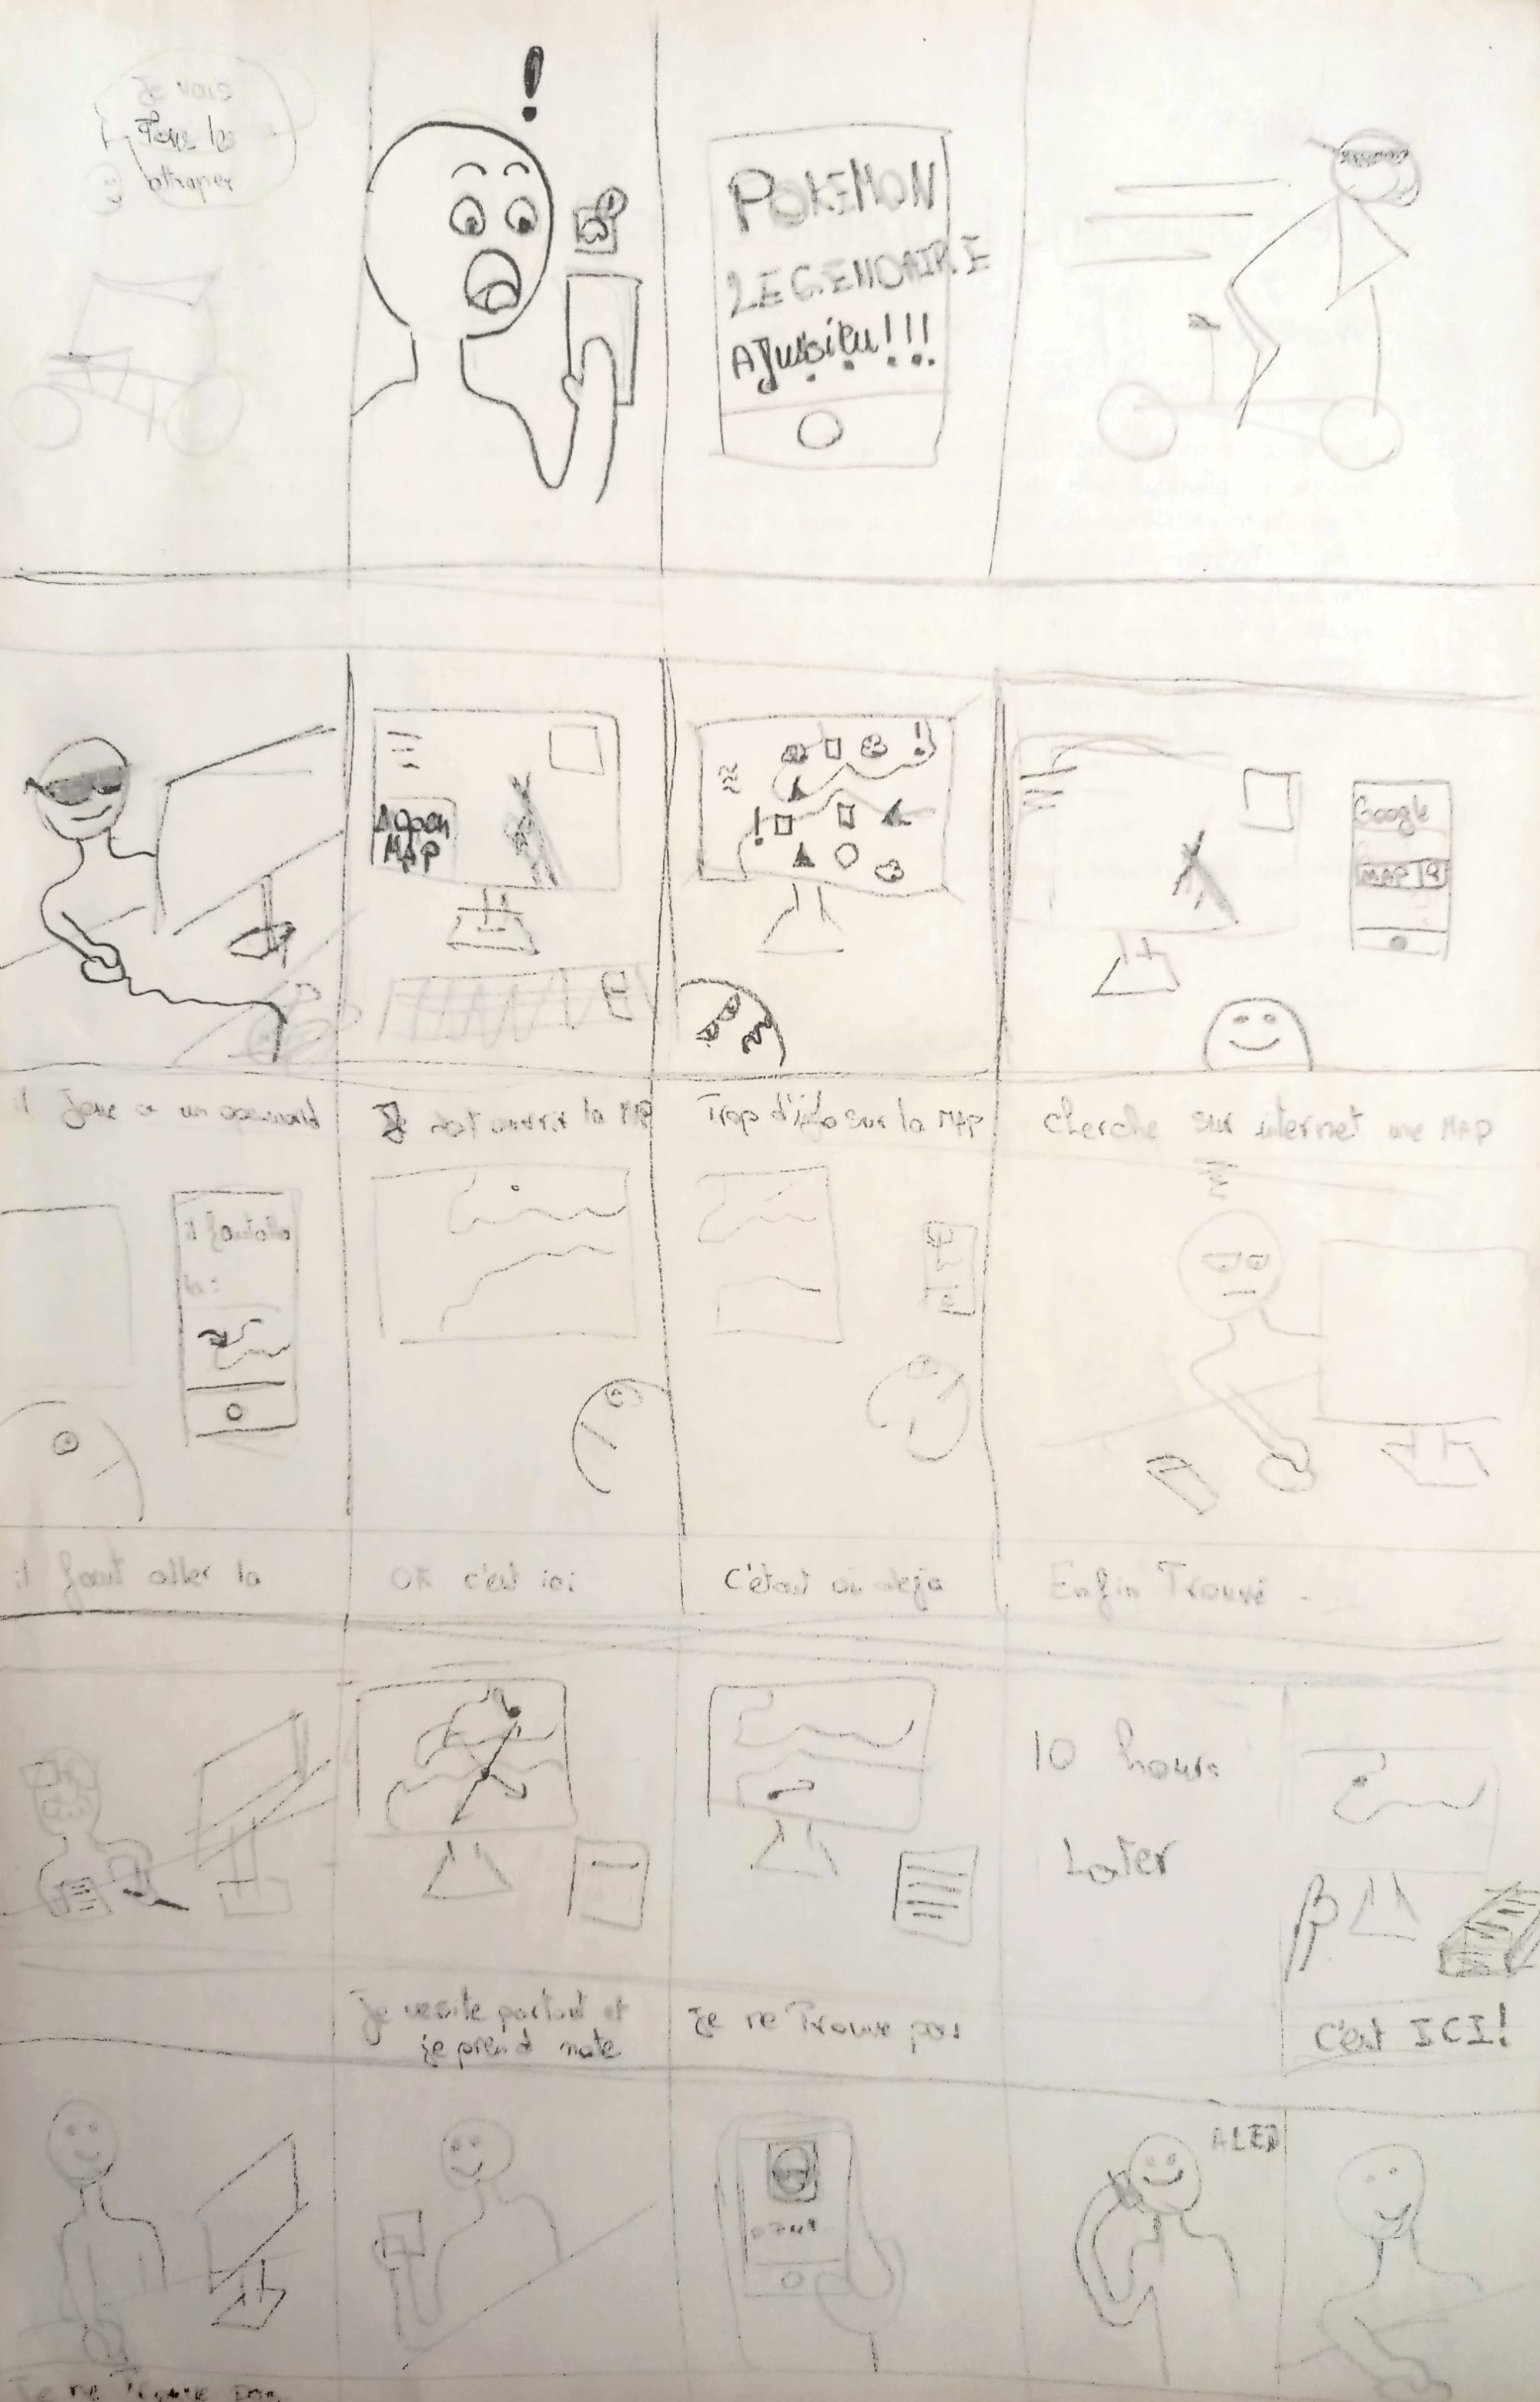 Je vais
Tous les
attraper
!
POKEMON
LEGENDAIRE
AJUSitu!!!
open
MAP
!
!
Google
MAP
il Joue a un
Je doit ouvrir la MAP
Trop d'info sur la MAP
cherche sur internet une MAP
il faut
la:
il faut aller la
OK c'est ici
C'était où deja
Enfin Trouvé
10 hours
Later
Je visite partout et
je prend note
Je ne Trouve pas
C'est ICI!
ALED
Je ne Trouve pas